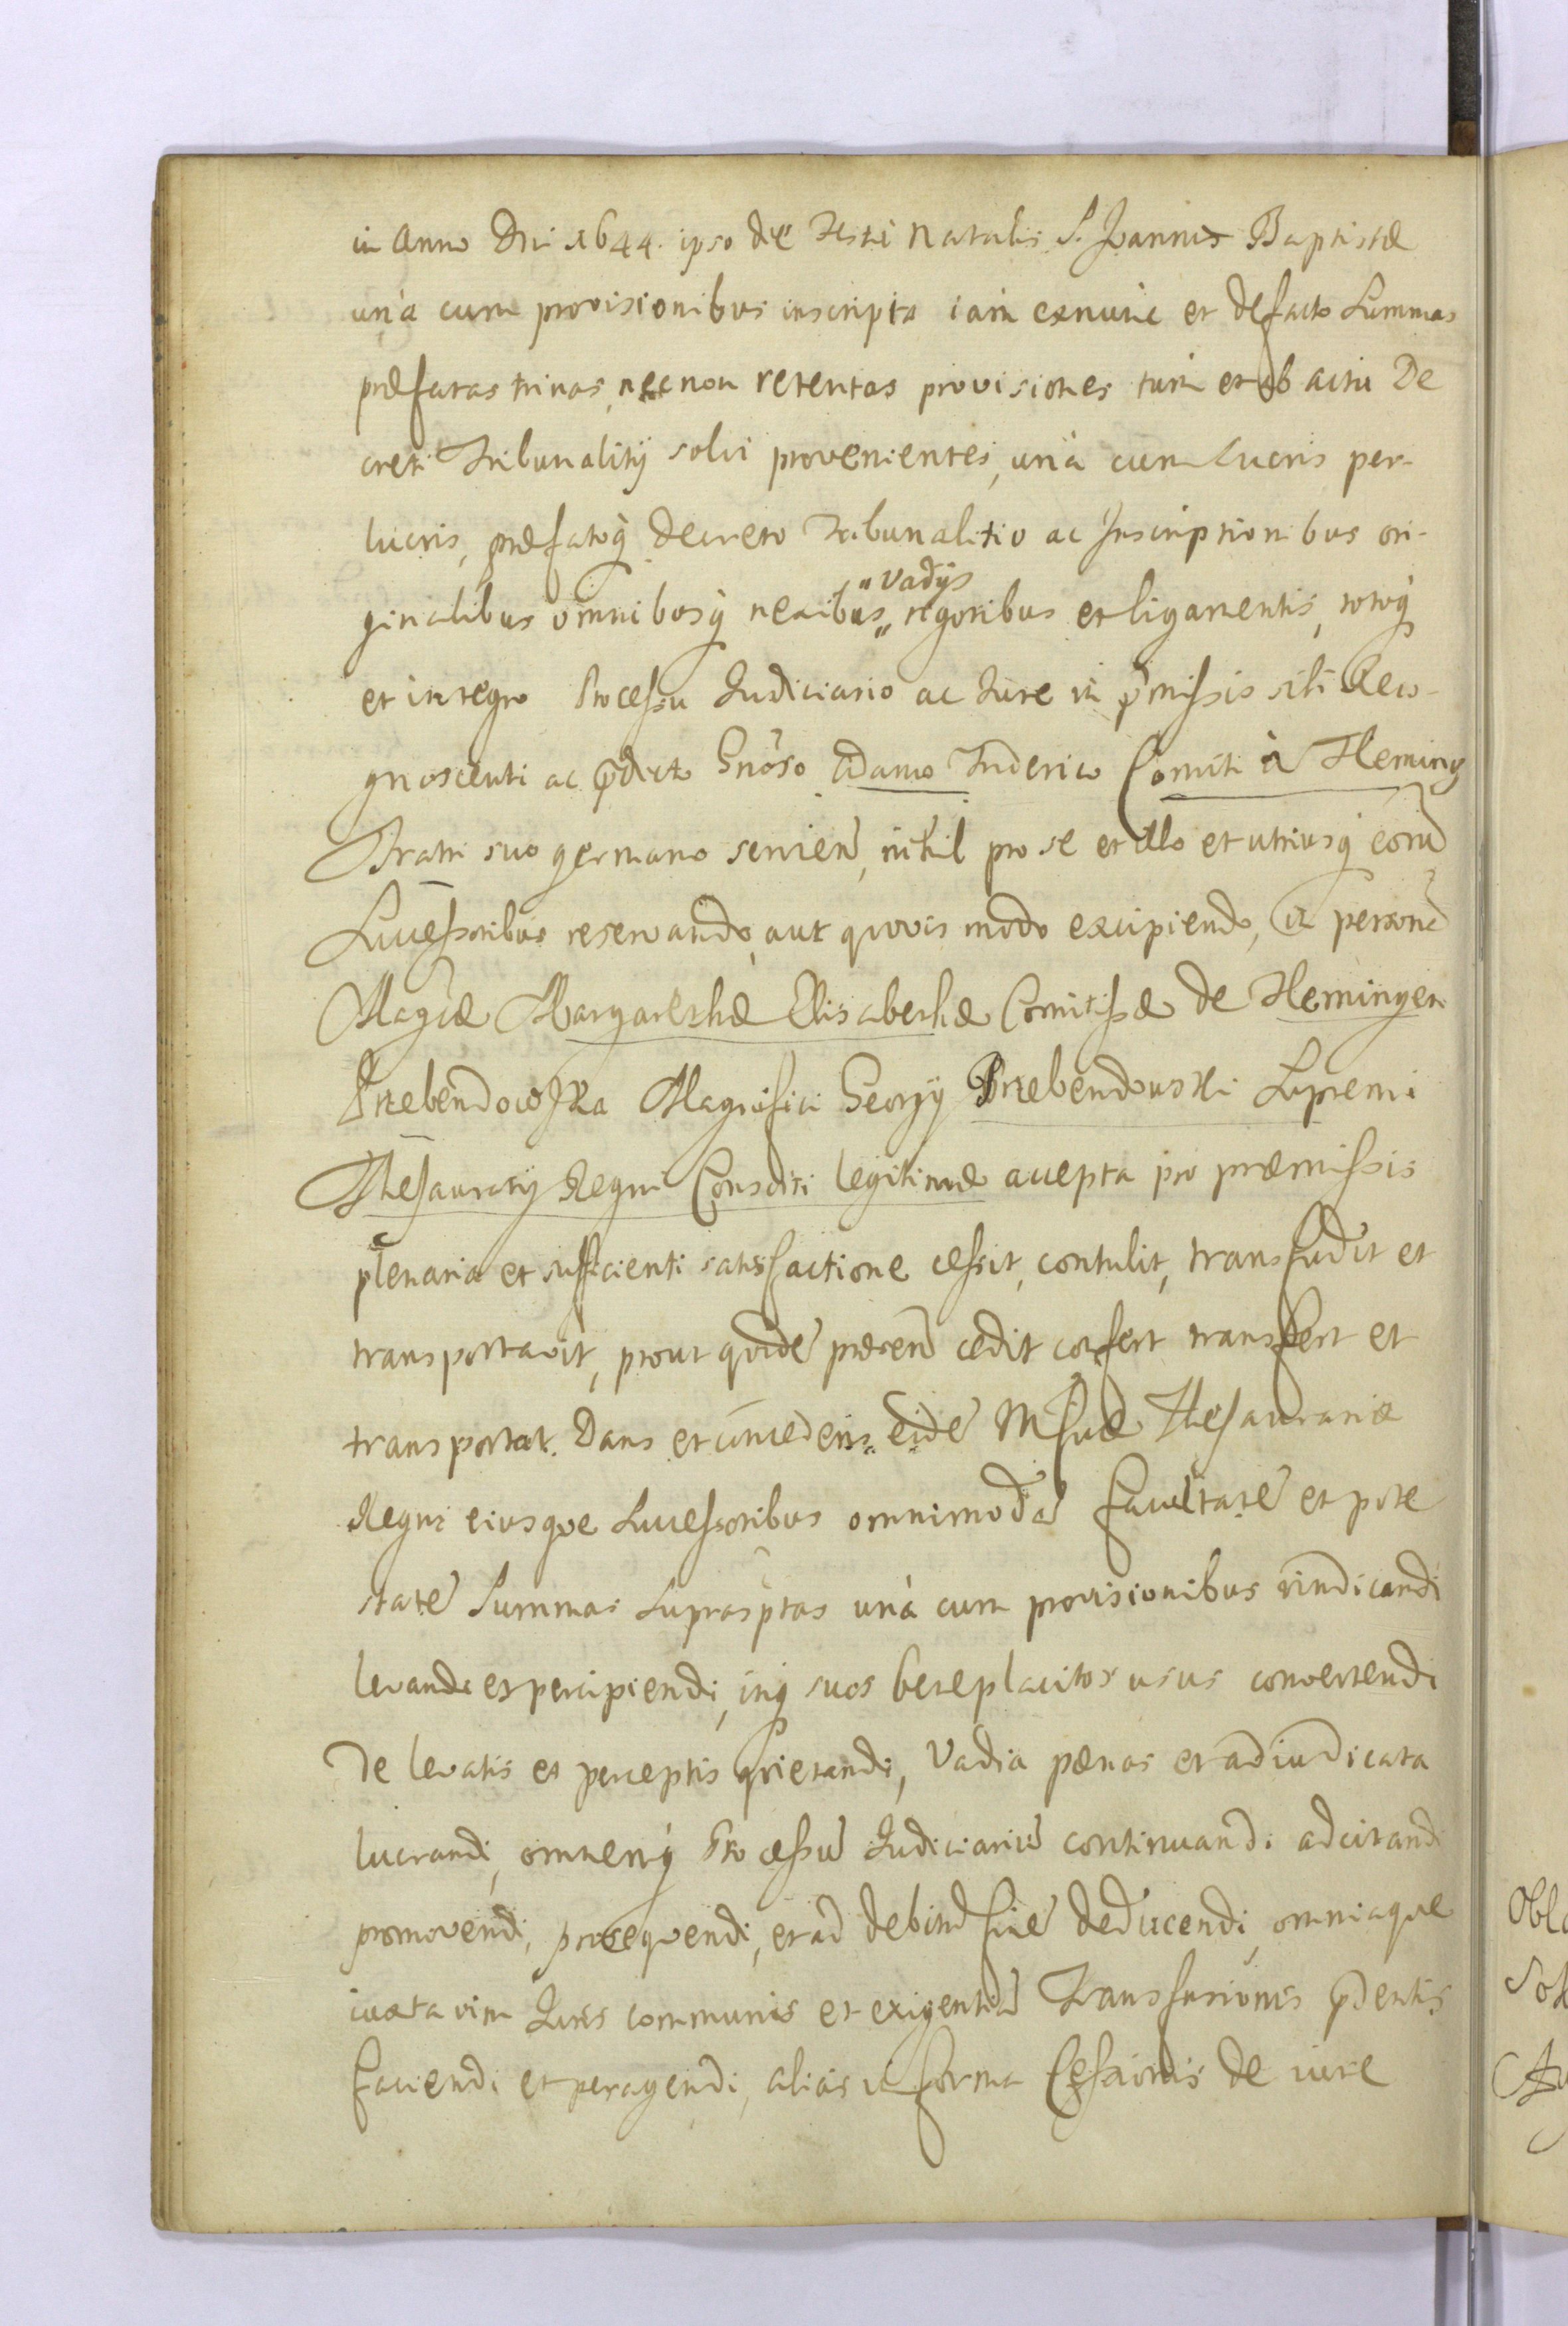 in Anno Dni 1644. ipso die Festi Natalis S. Joannis Baptistæ
unà cum provisionibus inscripta iam exnunc et defacto Summas
præfatas trinas, nec non retentas provisiones tum et ab actu De
creti Tribunalitij solvi provenientes, unà cum lucris per-
lucris, præfatoq̀ Decreto Tribunalitio ac Inscriptionibus ori-
„Vadijs
ginalibus omnibusq̀ nexibus„ rigoribus et ligamentis, totoq̀
et integro Processu Judiciario ac Jure in p̃missis sibi Reco-
gnoscenti ac p̃dicto Gnõso Adamo Friderico Comiti à Fleming
Fratri suo germano servien̄, nihil pro se et illo et utriusq̀ eorū
Successoribus reservando, aut quovis modo excipiendo, à personā
Magcæ Margarethæ Elisabethæ Comitissæ de Flemingen
Przebendowska Magnifici Georgij Przebendowski Supremi
Thesaurarij Regni Consorti legitimæ accepta pro præmissis
plenaria et sufficienti satisfactione cessit, contulit, transfudit et
transportavit, prout quidē præsen̄ cedit confert transfert et
transportat. Dans et concedens„ eidē Mficæ Thesaurariæ
Regni eiusque Successoribus omnimodā facultatē et pote
statē Summas Suprasptas unà cum provisionibus vindicandi
levandi et percipiendi, inq̀ suos beneplacitos usus convertendi
De levatis et perceptis quietandi, Vadia pænas et adiudicata
lucrandi, omnemq̀ Processū Judiciariū continuandi adcitandi
promovendi, prosequendi, et ad debitū finē deducendi, omniaque
iuxta vim Juris communis et exigentiā Transfusionis p̃dentis
faciendi et peragendi, alias in forma Cessionis de iure
Obl
Sol